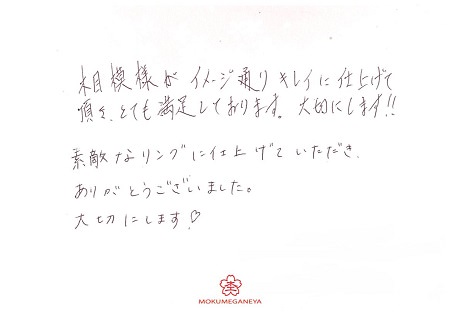 木目模様が イメージ通り キレイに仕上げて
頂き、とても満足しております。大切にします!!
素敵なリングに仕上げていただき、
ありがとうございました。
大切にします!♡
MOKUMEGANEYA